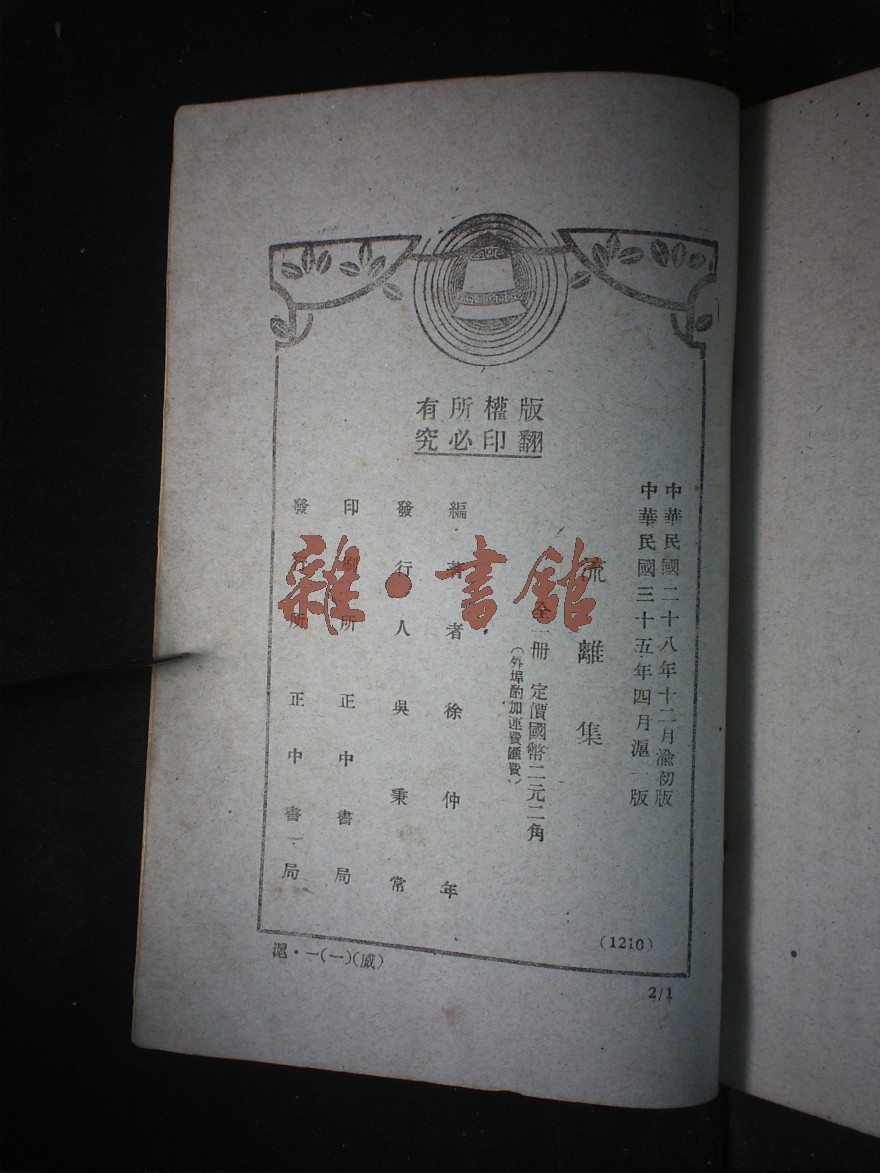 版權所有
翻印必究
中華民國二十八年十二月渝初版
中華民國三十五年四月滬一版
流離集
全一冊 定價國幣二元二角
(外埠酌加運費匯費)
編著者 徐仲年
發行人 吳秉常
印刷所 正中書局
發行所 正中書局
(1210)
滬·一(一)(威)
2/1
雜·書館